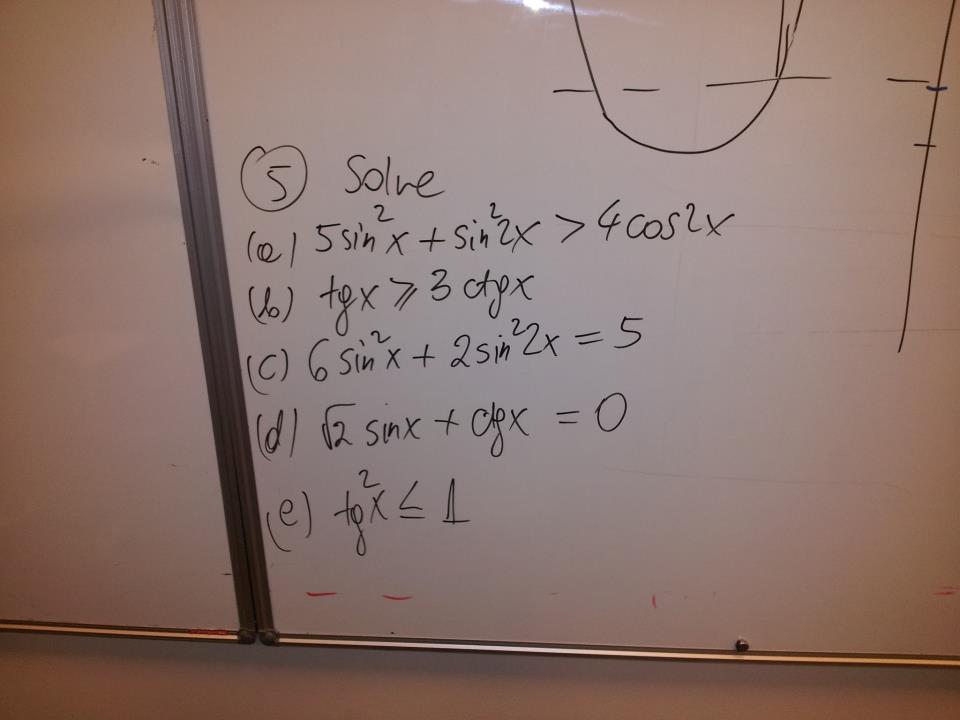 5 Solve
(a) 5 sin²x + sin²2x > 4 cos2x
(b) tgx ⩾ 3 ctgx
(c) 6 sin²x + 2 sin²2x = 5
(d) √2 sinx + ctgx = 0
(e) tg²x ≤ 1